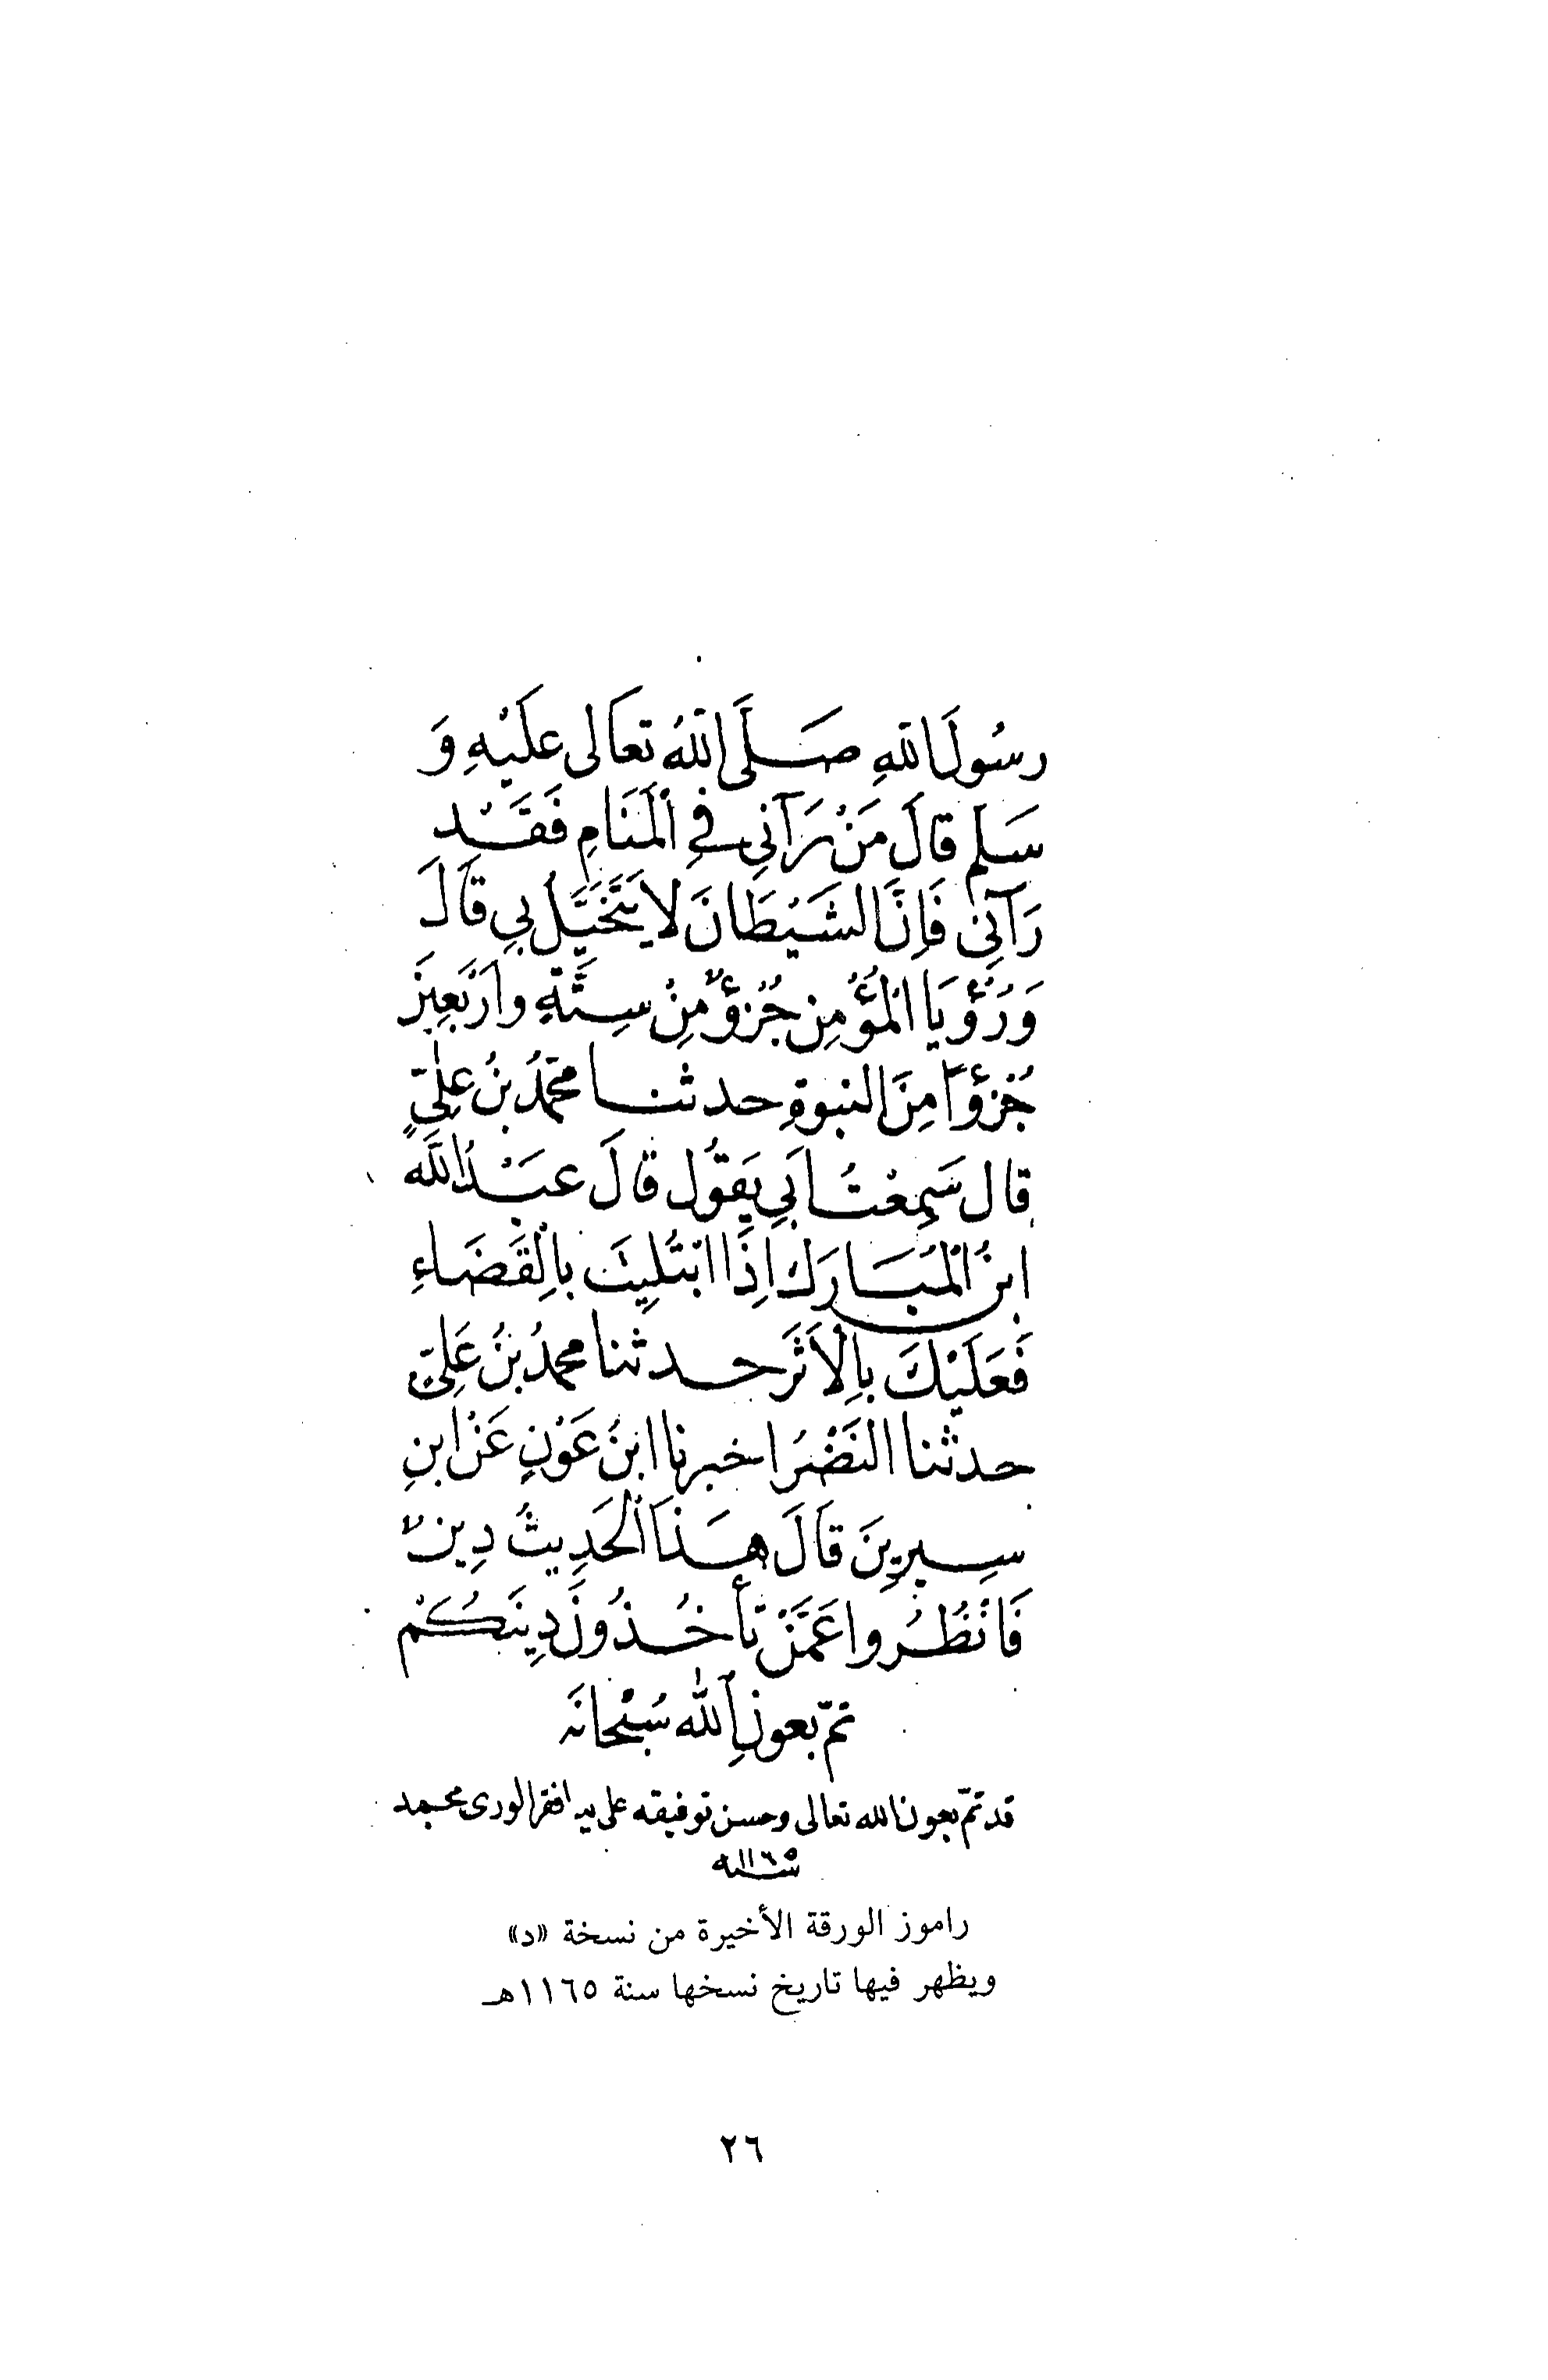 رَسُولَ اللهِ صَلَّى اللهُ تعَالى عَلَيْهِ وَ
سَلم قالَ مَنْ رَآنِى فِي الْمَنَامِ فَقَدِ
رَآنِى فَاِنَّ الشَيْطَانَ لا يَتَخَيَّلُ بِي قَالَ
وَرُؤْيَا الْمُؤْمِنِ جُزؤٌ مِنْ سِتَّةٍ وارَبَعِينَ
جُزؤًا مِنَ النبوةِ حدثنا محَمَّدُ بنُ عِلِيٍّ
قال سَمِعْتُ ابَي يَقوُل قالَ عَبْدُ اللَّه
ابنُ الْمُبَارَك اِذَا ابتُلِيتَ بِالْقَضَاءِ
فَعَلَيْكَ بِالْاَثَرِ حدثنا محمدُ بنُ عَلِيّ
حدثنا النَضْرُ اخبرنا ابنُ عَوْنٍ عَنْ ابنِ
سِيرِينَ قَالَ هَذَا الْحَدِيثُ دِينٌ
فَانْظُرُوا عَمَّنْ تَأخُذُونَ دِينَكُمْ
تمّ بعونِ اللّٰه سُبْحَانَه
قد تمّ بعون الله تعالى وحسن توفيقه على يد افقر الورى محمد
سنه ١١٦٥
راموز الورقة الأخيرة من نسخة «د»
ويظهر فيها تاريخ نسخها سنة ١١٦٥هـ
٢٦